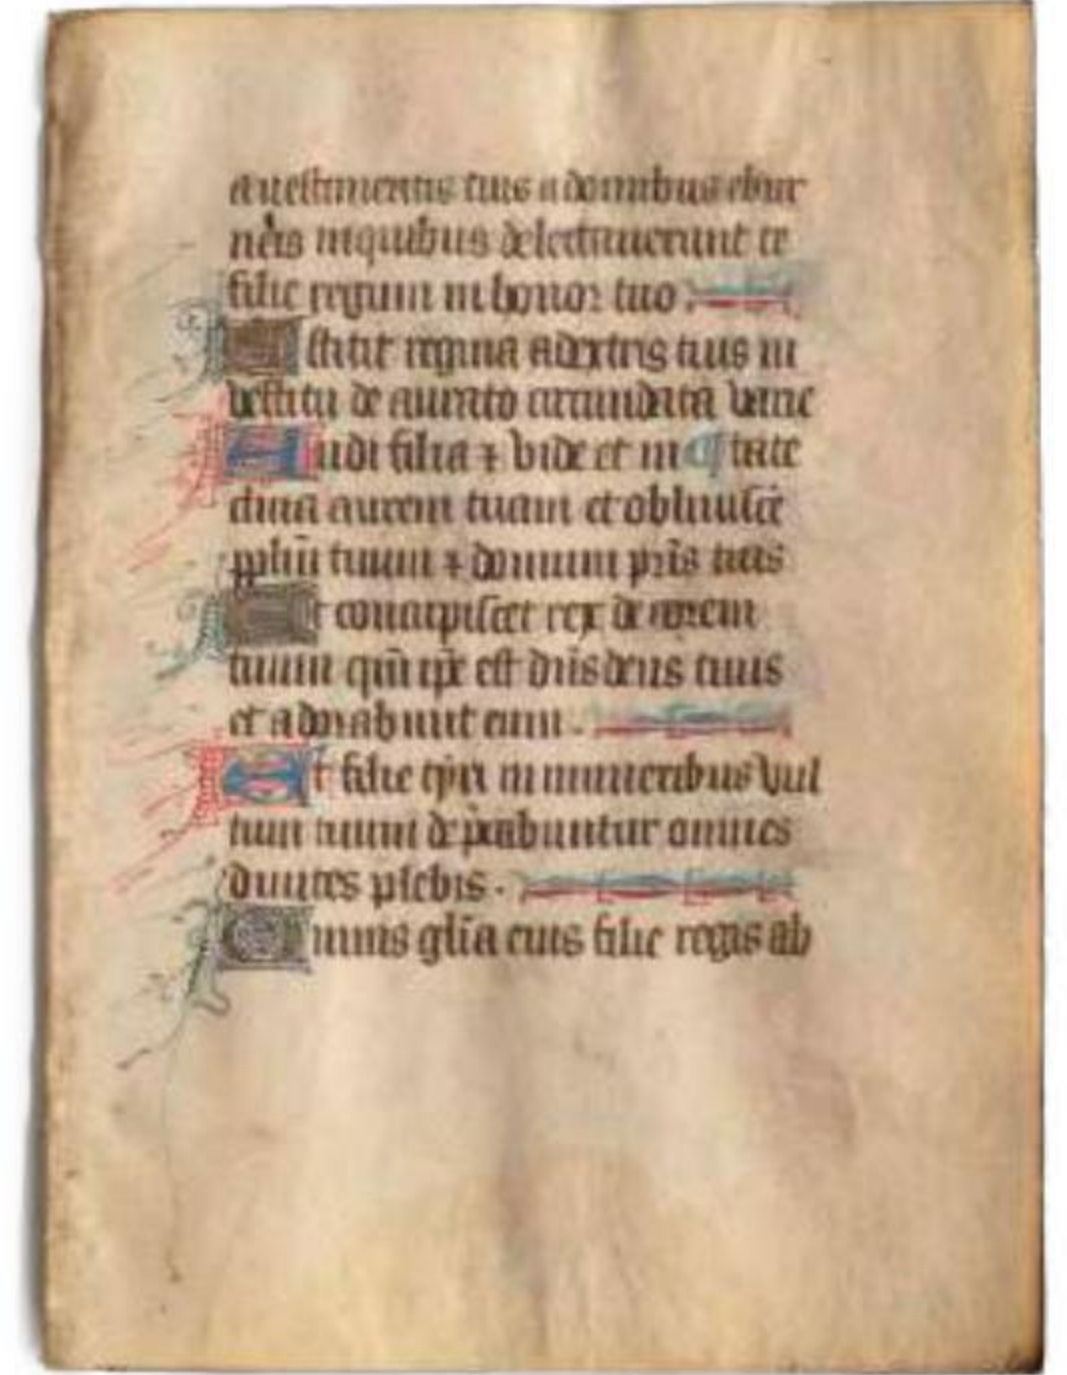 a uestimentis tuis a domibus ebur
neis in quibus delectauerunt te
filie regum in honor tuo.
Astitit regina a dextris tuis in
vestitu de aurato circumdata varie
Audi filia ⁊ vide et in ¶ tate
clina aurem tuam et obliuisce
pplm̄ tuum ⁊ domum pr̄is tuis
Et concupiscet rex decorem
tuum qm̄ ip̄e est dn̄s deus tuus
et adorabunt eum.
Et filie tyri in muneribus vul
tum tuum dep̄cabuntur omnes
diuites plebis.
Omnis gl̄ia eius filie regis ab